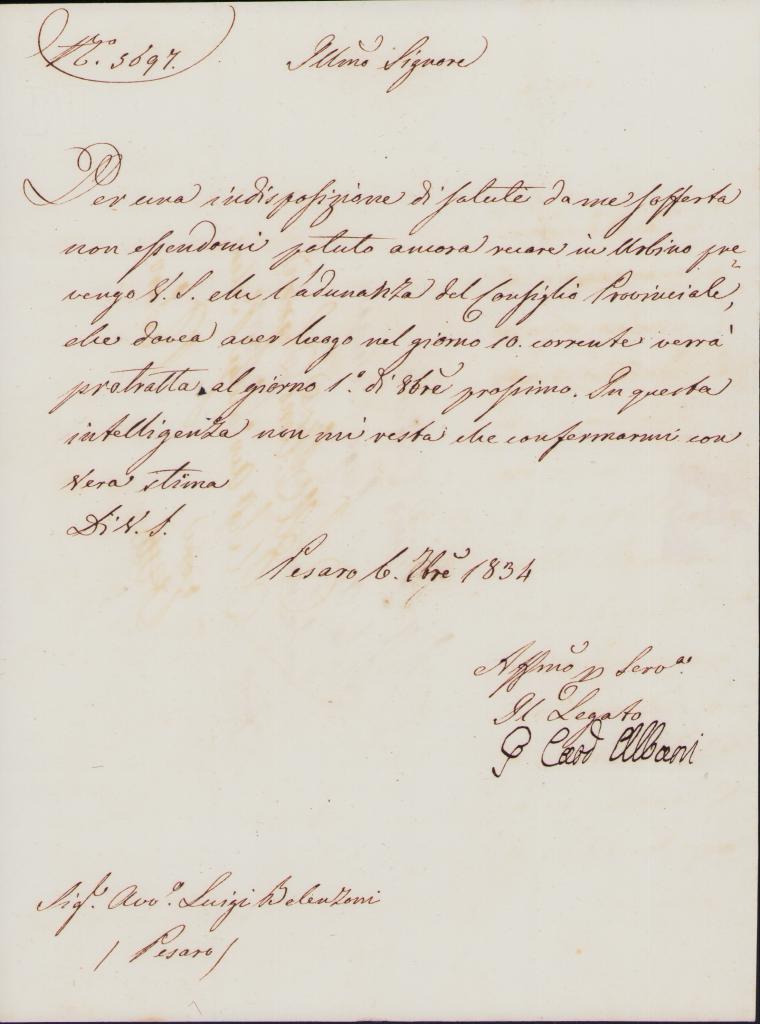 N.º 5697.
Illmõ Signore
Per una indisposizione di salute da me sofferta
non essendomi potuto ancora recare in Urbino pre-
vengo V. S. che l'adunanza del Consiglio Provinciale,
che dovea aver luogo nel giorno 10. corrente verrà
protratta al giorno 1.º di 8brẽ prossimo. In questa
intelligenza non mi resta che confermarmi con
vera stima
Di V. S.
Pesaro 6. 7brẽ 1834
Affmõ p Servo
Il Legato
G Card Albani
Sigr. Avvº. Luigi Belenzoni
/ Pesaro /